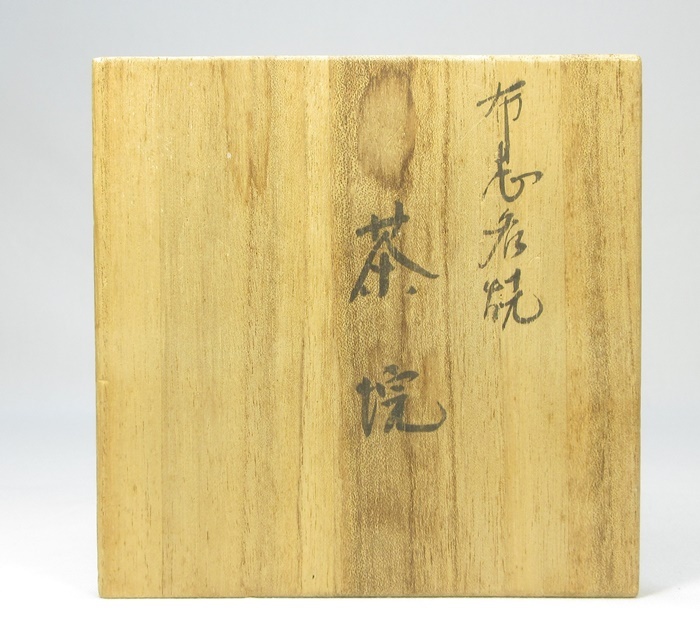 布志名焼
茶垸